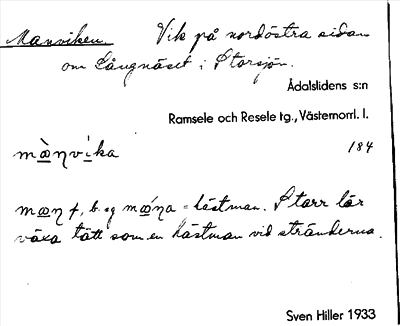 Manviken. Vik på nordöstra sidan
om Långnäset i Storsjön.
Ådalslidens s:n
Ramsele och Resele tg., Västernorrl. l.
mæ̀nvi̇ka 184
mæn f, b. sg mǽna = hästman. Starr lär
växa tätt som en hästman vid stränderna.
Sven Hiller 1933